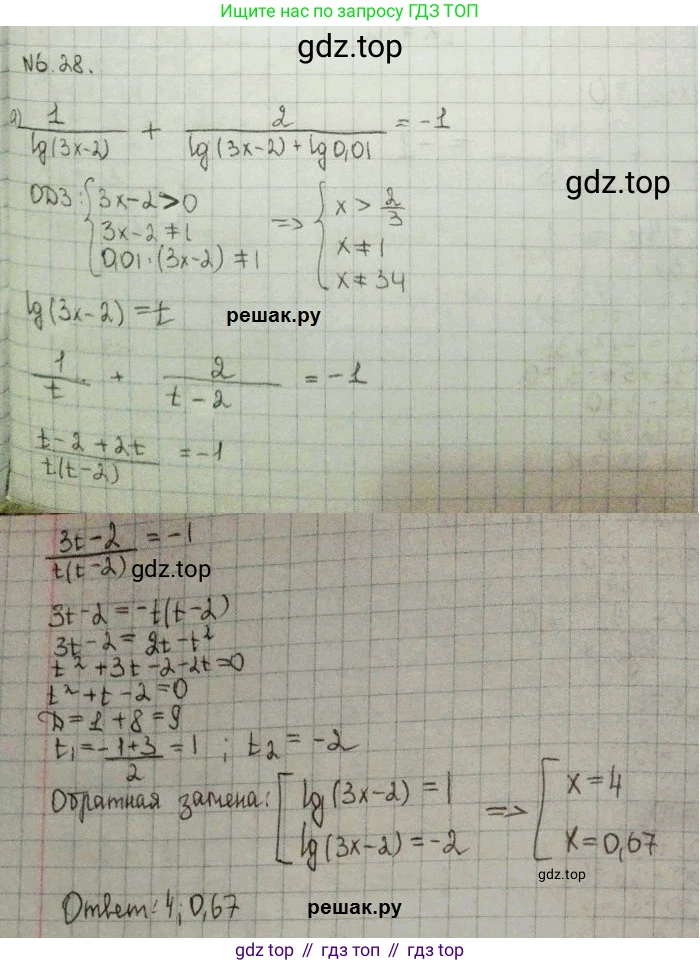 Ищите нас по запросу ГДЗ ТОП
gdz.top
N6.28.
а) 1/lg(3x-2) + 2/(lg(3x-2) + lg0,01) = -1
gdz.top
ОДЗ: { 3x-2>0 => { x > 2/3
3x-2 ≠ 1 x ≠ 1
0,01·(3x-2) ≠ 1 x ≠ 34
lg(3x-2) = t решак.ру
1/t + 2/(t-2) = -1
(t-2+2t)/(t(t-2)) = -1
(3t-2)/(t(t-2)) = -1
gdz.top
3t-2 = -t(t-2)
3t-2 = 2t-t²
t² + 3t-2-2t=0
t² + t - 2 = 0
D = 1 + 8 = 9
t₁ = (-1+3)/2 = 1 ; t₂ = -2
Обратная замена: [ lg(3x-2) = 1 => [ x = 4
lg(3x-2) = -2 x = 0,67
gdz.top
Ответ: 4; 0,67 решак.ру
gdz top // гдз топ // gdz.top